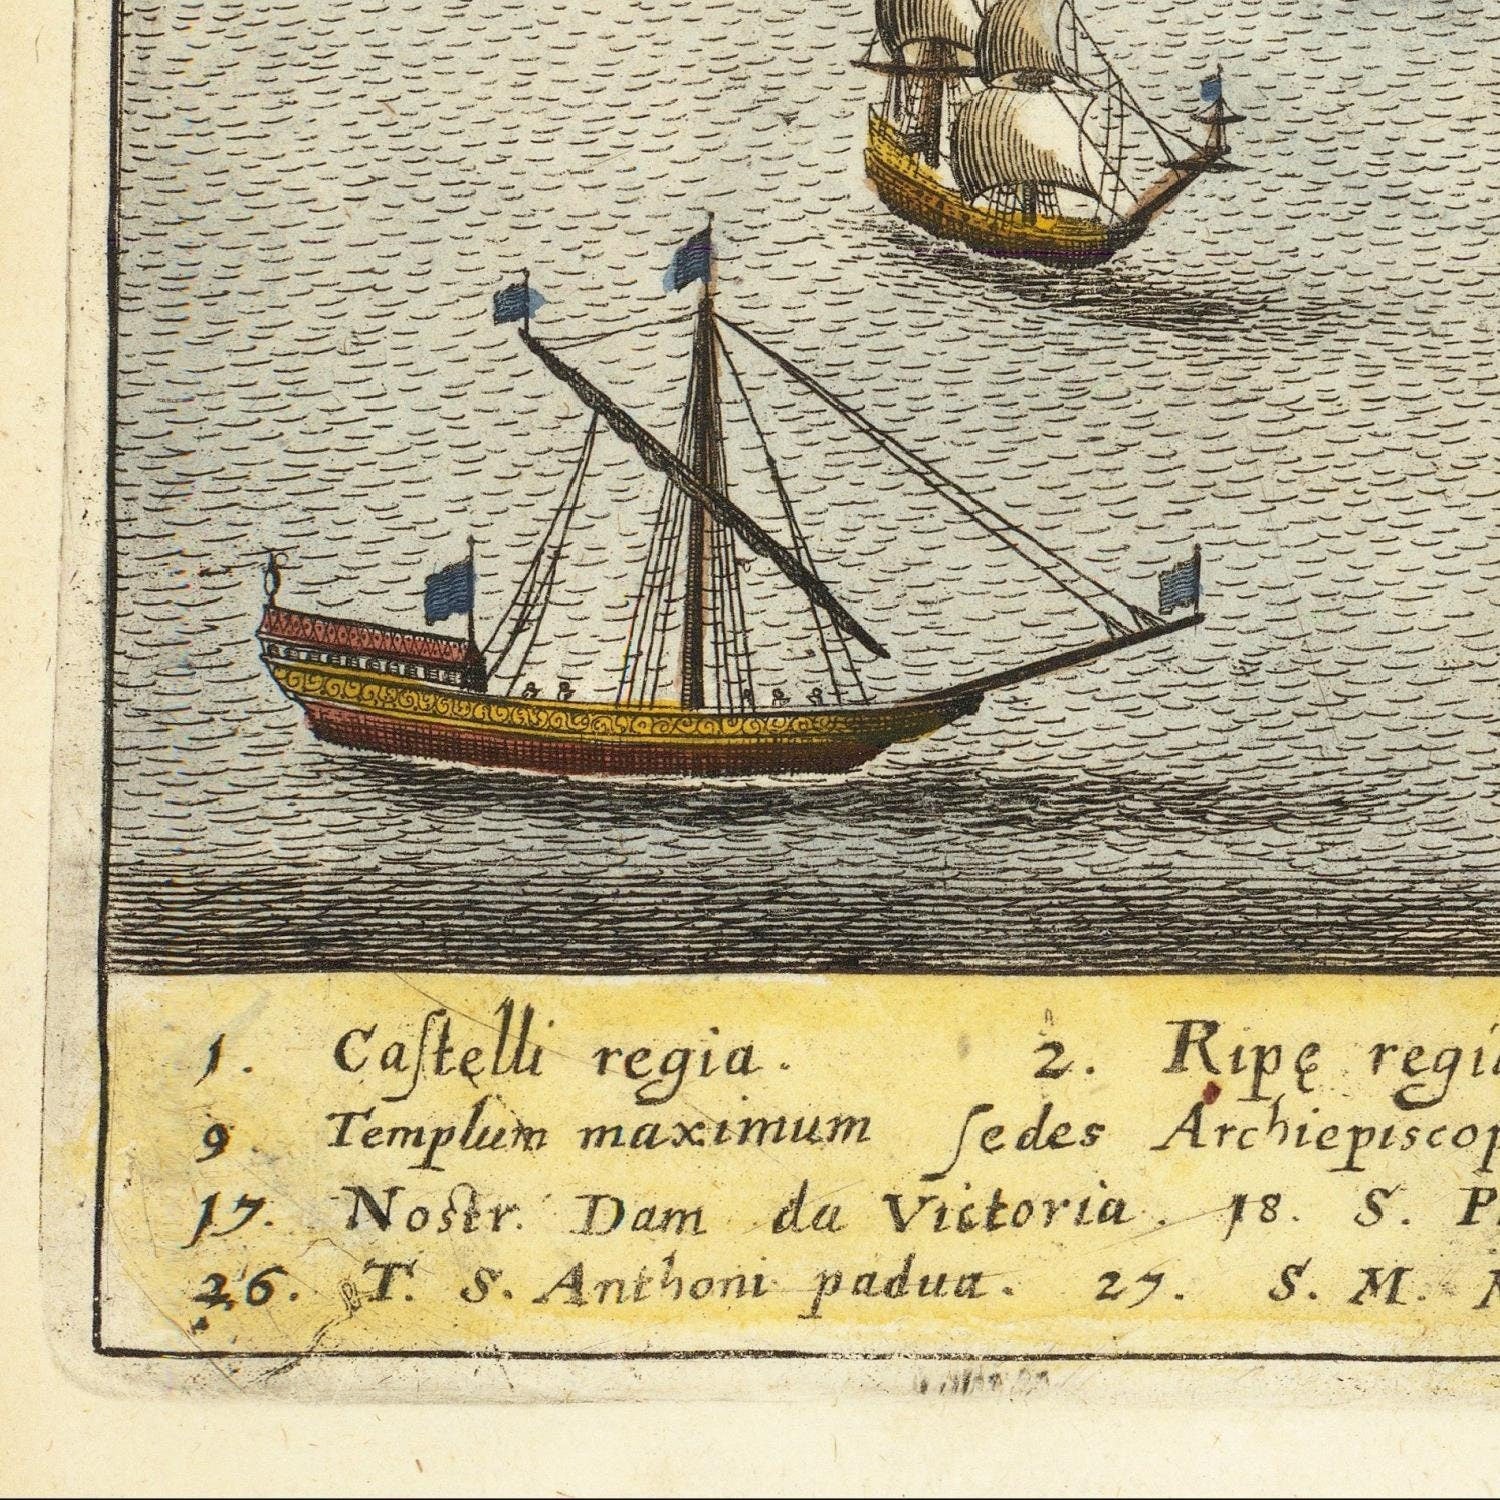 1. Caſtęlli regia. 2. Ripę regia
9 Templum maximum ſedes Archiepiscop
17. Nostr. Dam da Victoria. 18. S. P
26. T. S. Anthoni padua. 27. S. M.